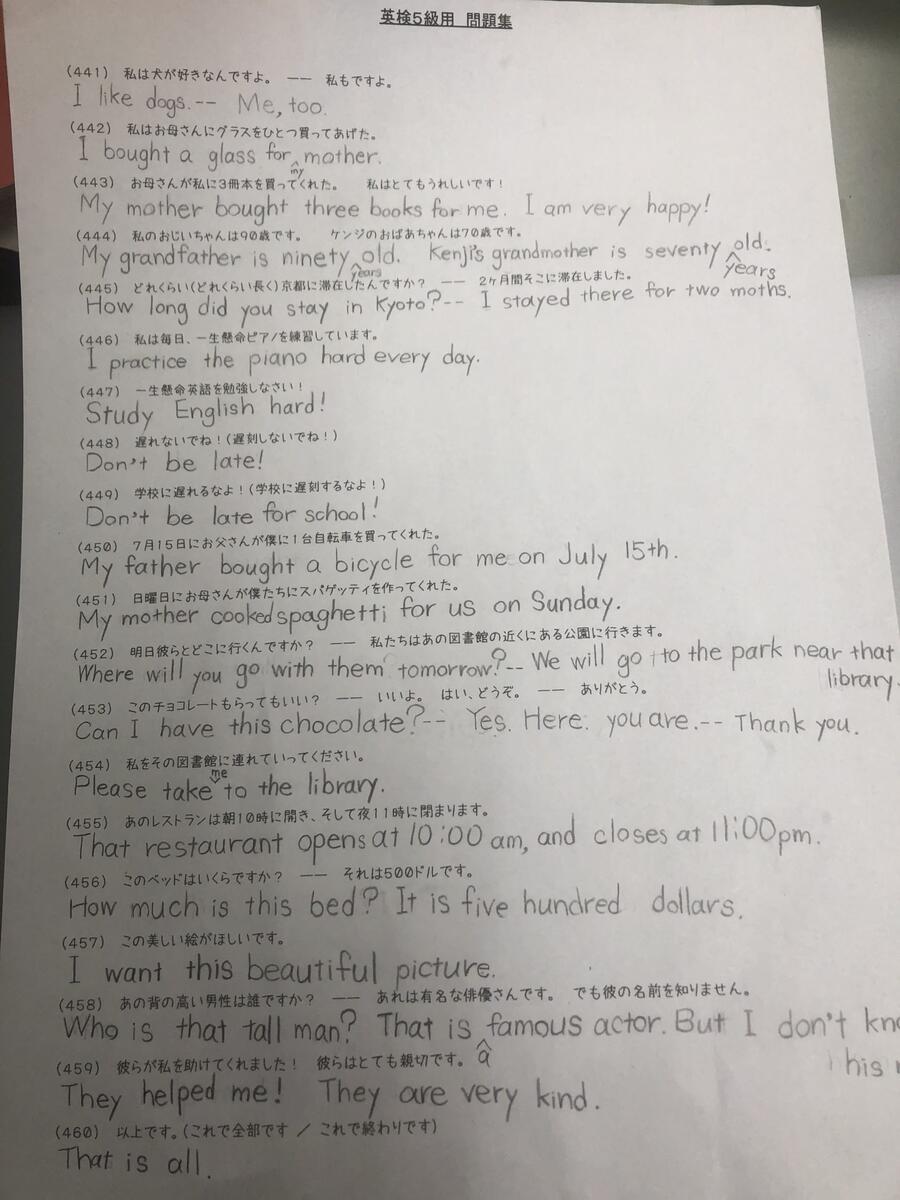 英検5級用 問題集
(441) 私は犬が好きなんですよ。 —— 私もですよ。
I like dogs.-- Me, too.
(442) 私はお母さんにグラスをひとつ買ってあげた。
I bought a glass for my mother.
(443) お母さんが私に3冊本を買ってくれた。 私はとてもうれしいです!
My mother bought three books for me. I am very happy!
(444) 私のおじいちゃんは90歳です。 ケンジのおばあちゃんは70歳です。
My grandfather is ninety years old. Kenji's grandmother is seventy years old.
(445) どれくらい(どれくらい長く)京都に滞在したんですか? —— 2ヶ月間そこに滞在しました。
How long did you stay in Kyoto?-- I stayed there for two moths.
(446) 私は毎日、一生懸命ピアノを練習しています。
I practice the piano hard every day.
(447) 一生懸命英語を勉強しなさい!
Study English hard!
(448) 遅れないでね!(遅刻しないでね!)
Don't be late!
(449) 学校に遅れるなよ!(学校に遅刻するなよ!)
Don't be late for school!
(450) 7月15日にお父さんが僕に1台自転車を買ってくれた。
My father bought a bicycle for me on July 15th.
(451) 日曜日にお母さんが僕たちにスパゲッティを作ってくれた。
My mother cooked spaghetti for us on Sunday.
(452) 明日彼らとどこに行くんですか? —— 私たちはあの図書館の近くにある公園に行きます。
Where will you go with them tomorrow?-- We will go to the park near that
library.
(453) このチョコレートもらってもいい? —— いいよ。 はい、どうぞ。 —— ありがとう。
Can I have this chocolate?-- Yes. Here. you are.-- Thank you.
(454) 私をその図書館に連れていってください。
Please take me to the library.
(455) あのレストランは朝10時に開き、そして夜11時に閉まります。
That restaurant opens at 10:00 am, and closes at 11:00pm.
(456) このベッドはいくらですか? —— それは500ドルです。
How much is this bed? It is five hundred dollars.
(457) この美しい絵がほしいです。
I want this beautiful picture.
(458) あの背の高い男性は誰ですか? —— あれは有名な俳優さんです。 でも彼の名前を知りません。
Who is that tall man? That is a famous actor. But I don't
his
(459) 彼らが私を助けてくれました! 彼らはとても親切です。
They helped me! They are very kind.
(460) 以上です。(これで全部です / これで終わりです)
That is all.